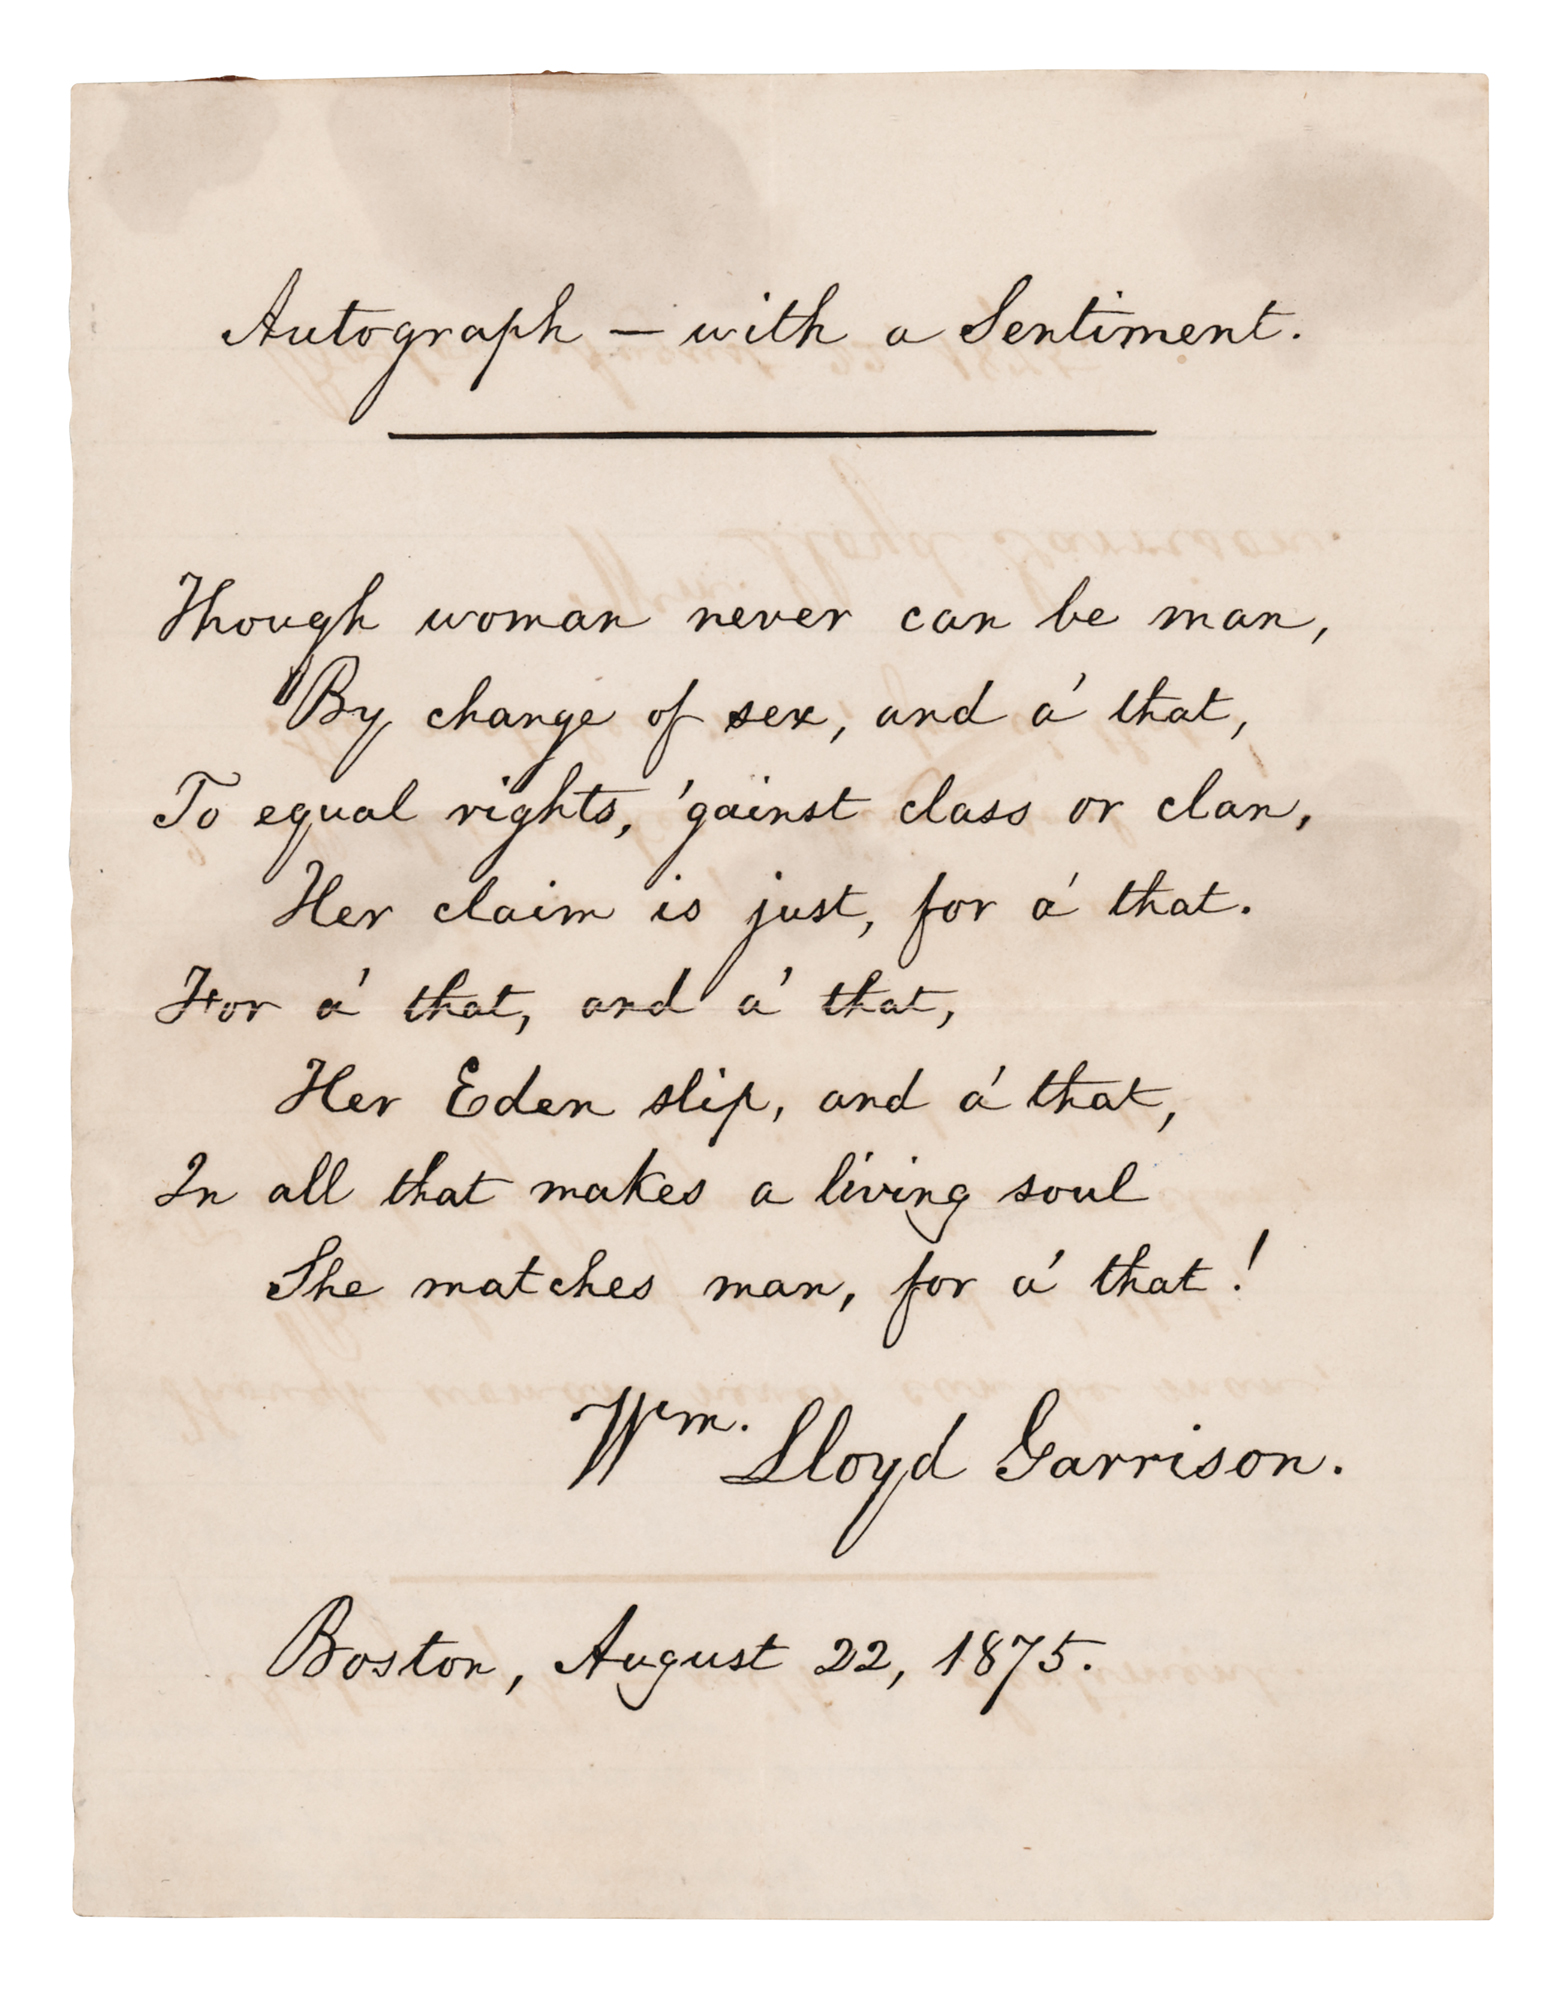 Autograph — with a Sentiment.
Though woman never can be man,
By change of sex, and a' that,
To equal rights, 'gainst class or clan,
Her claim is just, for a' that.
For a' that, and a' that,
Her Eden slip, and a' that,
In all that makes a living soul
She matches man, for a' that!
Wm. Lloyd Garrison.
Boston, August 22, 1875.